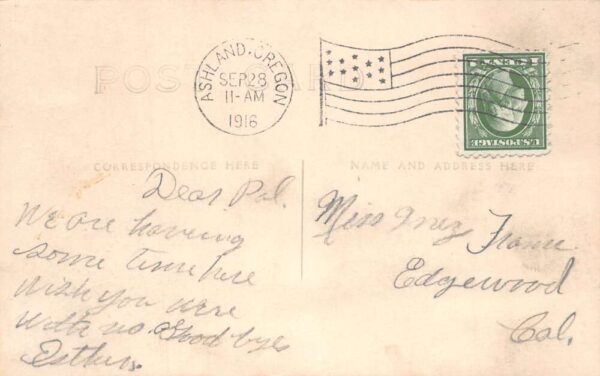 POST CARD
ASHLAND, OREGON
SEP 28
11-AM
1916
1 CENT 1
U.S. POSTAGE
CORRESPONDENCE HERE
NAME AND ADDRESS HERE
Dear Pal.
We are having
some time here
Wish you were
with us. Good bye
Esther.
Miss Inez
Edgewood
Cal.